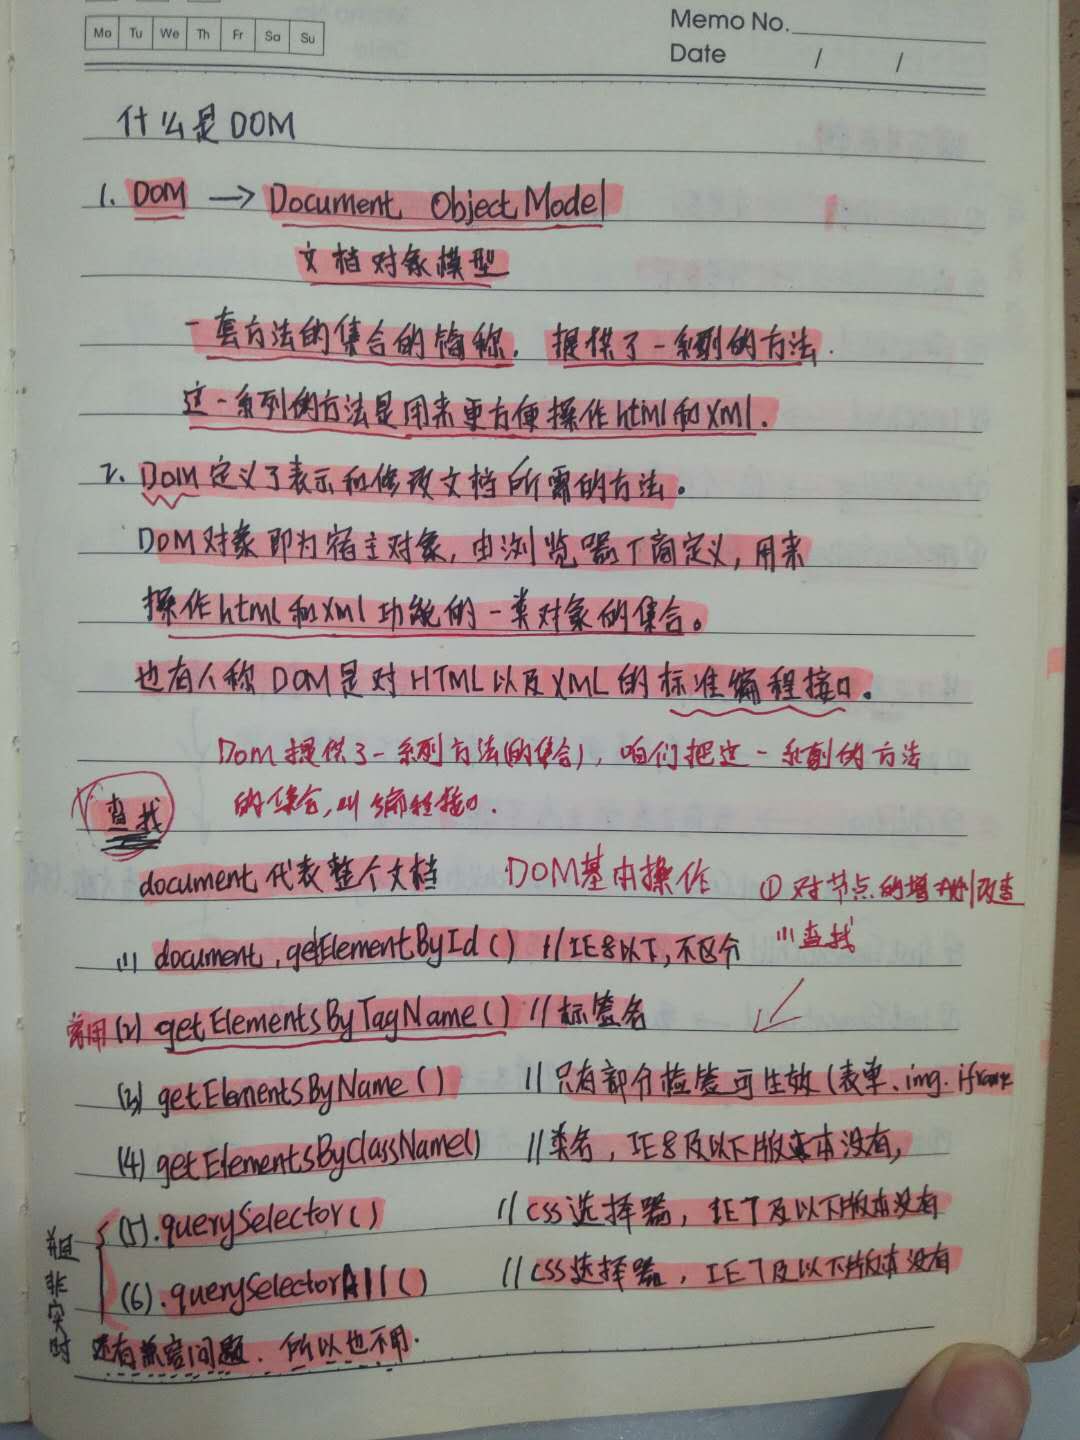 Mo Tu We Th Fr Sa Su
Memo No.
Date / /
什么是DOM
1. DOM → Document Object Model
文档对象模型
一套方法的集合的简称，提供了一系列的方法.
这一系列的方法是用来更方便操作html和xml.
2. DOM定义了表示和修改文档所需的方法。
DOM对象即为宿主对象，由浏览器厂商定义，用来
操作html和xml功能的一类对象的集合。
也有人称DOM是对HTML以及XML的标准编程接口。
DOM提供了一系列方法(的集合)，咱们把这一系列的方法
的集合,叫编程接口.
查找
document代表整个文档 DOM基本操作 ① 对节点的增删改查
(1) document.getElementById() //IE8以下,不区分 (1)查找
常用 (2) getElementsByTagName() //标签名
(3) getElementsByName() //只有部分标签可生效(表单.img.iframe
(4) getElementsByClassName() //类名，IE8及以下版本没有,
(5).querySelector() //css选择器，IE7及以下版本没有
(6).querySelectorAll() //css选择器，IE7及以下版本没有
并且非实时
还有兼容问题.所以也不用.